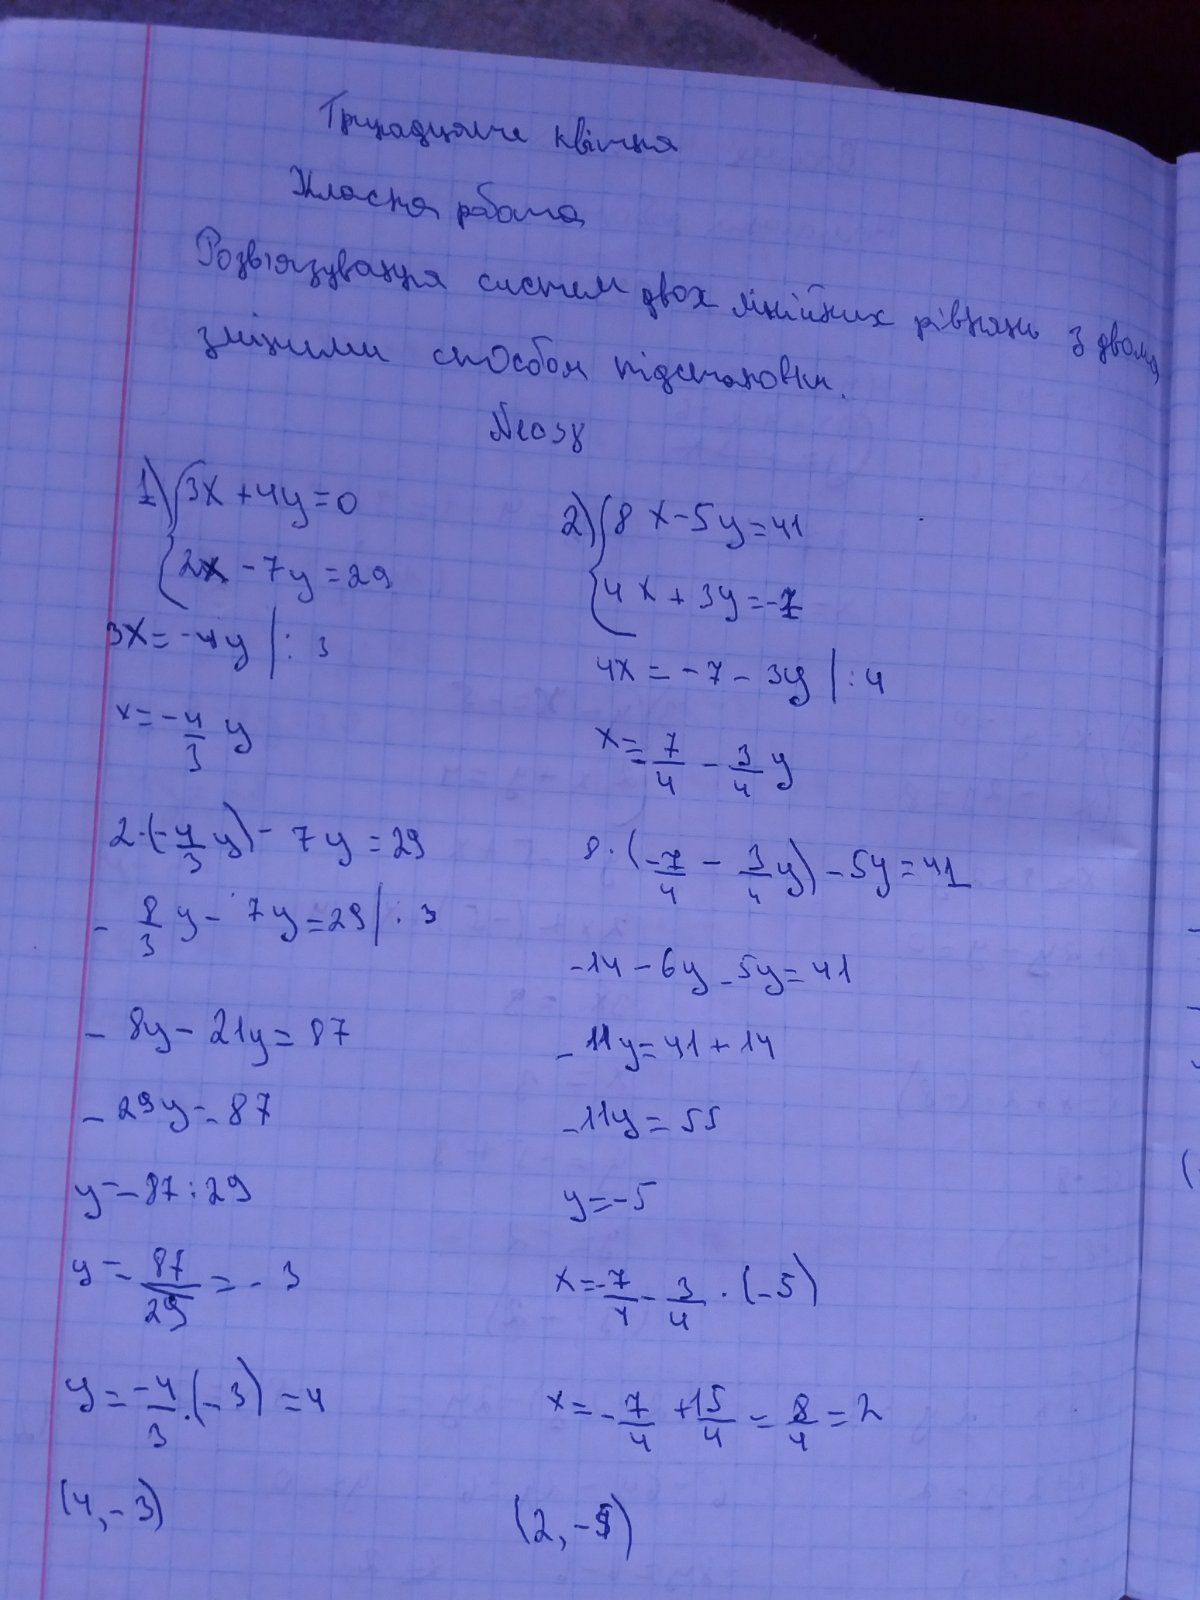 Тринадцяте квітня
Класна робота
Розв'язування систем двох лінійних рівнянь з двома
змінними способом підстановки.
№1038
1) {3x + 4y = 0
{2x - 7y = 29
3x = -4y | : 3
x = -4/3 y
2·(-4/3 y) - 7y = 29
- 8/3 y - 7y = 29 | · 3
- 8y - 21y = 87
- 29y = 87
y = - 87 : 29
y = - 87/29 = - 3
y = -4/3 · (-3) = 4
(4, -3)
2) {8x - 5y = 41
{4x + 3y = -7
4x = -7 - 3y | : 4
x = - 7/4 - 3/4 y
8 · (-7/4 - 3/4 y) - 5y = 41
-14 - 6y - 5y = 41
- 11y = 41 + 14
- 11y = 55
y = -5
x = -7/4 - 3/4 · (-5)
x = - 7/4 + 15/4 = 8/4 = 2
(2, -5)